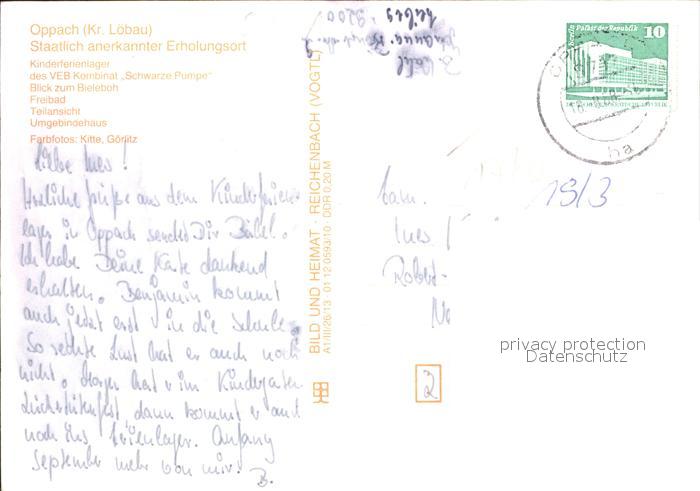 Oppach (Kr. Löbau)
Staatlich anerkannter Erholungsort
Kinderferienlager
des VEB Kombinat „Schwarze Pumpe"
Blick zum Bieleboh
Freibad
Teilansicht
Umgebindehaus
Farbfotos: Kitte, Görlitz
Liebe Ines!
Herzliche Grüße aus dem Kinderferien-
lager in Oppach sendet Dir Bärbel.
Ich habe Deine Karte dankend
erhalten. Benjamin kommt
auch jetzt erst in die Schule.
So rechte Lust hat er auch noch
nicht. Morgen hat er im Kindergarten
Zuckertütenfest, dann kommt er auch
noch ins Ferienlager. Anfang
September mehr von mir.
B.
BILD UND HEIMAT · REICHENBACH (VOGTL)
A1/III/26/13 01 12 0593/10 · DDR 0,20 M
9200
Palast der Republik
10
Fam.
Ines
Robert-
18/3
2
privacy protection
Datenschutz